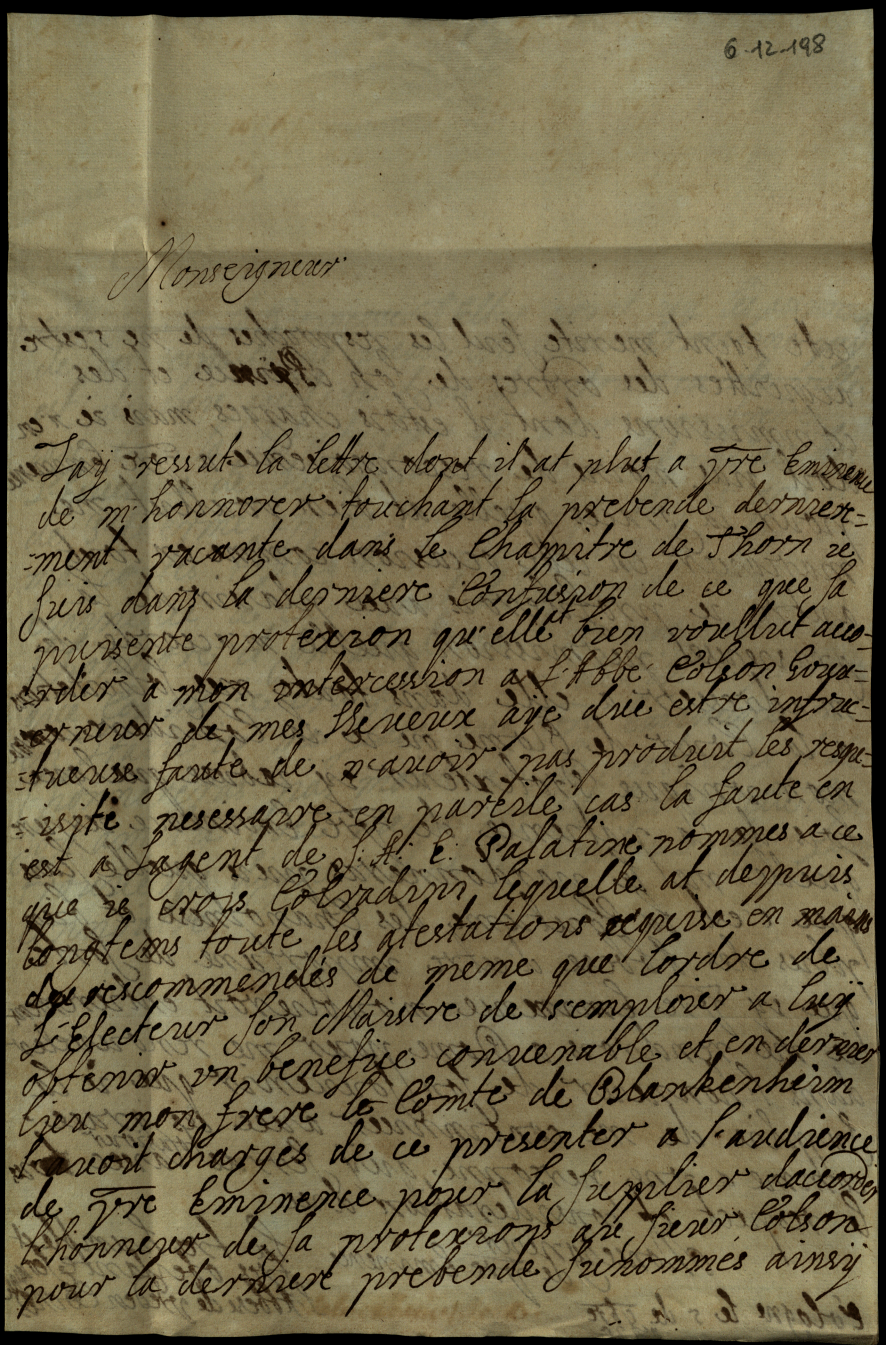 6-12-198
Monseigneur
J'aÿ ressut la lettre dont il at plut a vre Eminence
de m'honnorer touchant la prebende derniere=
=ment vacante dans le Chapitre de Thorn ie
suis dans la derniere Confusion de ce que sa
puisente protexion qu'elle at bien voullut acco=
=rder a mon intercession a L'Abbé Colson Gouu=
=erneur de mes Neueux aÿe due estre infruc=
=tueuse faute de n'auoir pas produit les requ=
=isite nesessaire en pareile cas la faute en
est a L'agent de S: A: E: Palatine nommes a ce
que ie crois Colradini lequelle at deppuis
longtems toute les atestations requise en mains
des rescommendés de meme que l'ordre de
L'Electeur son Maistre de s'emploier a luÿ
obtenir vn benefice convenable et en dernier
lieu mon frere le Comte de Blankenheim
l'auoit charges de ce presenter a l'audience
de vre Eminence pour la suplier d'accorder
l'honneur de sa protexions au sieur Colson
pour la derniere prebende sunommés ainsÿ